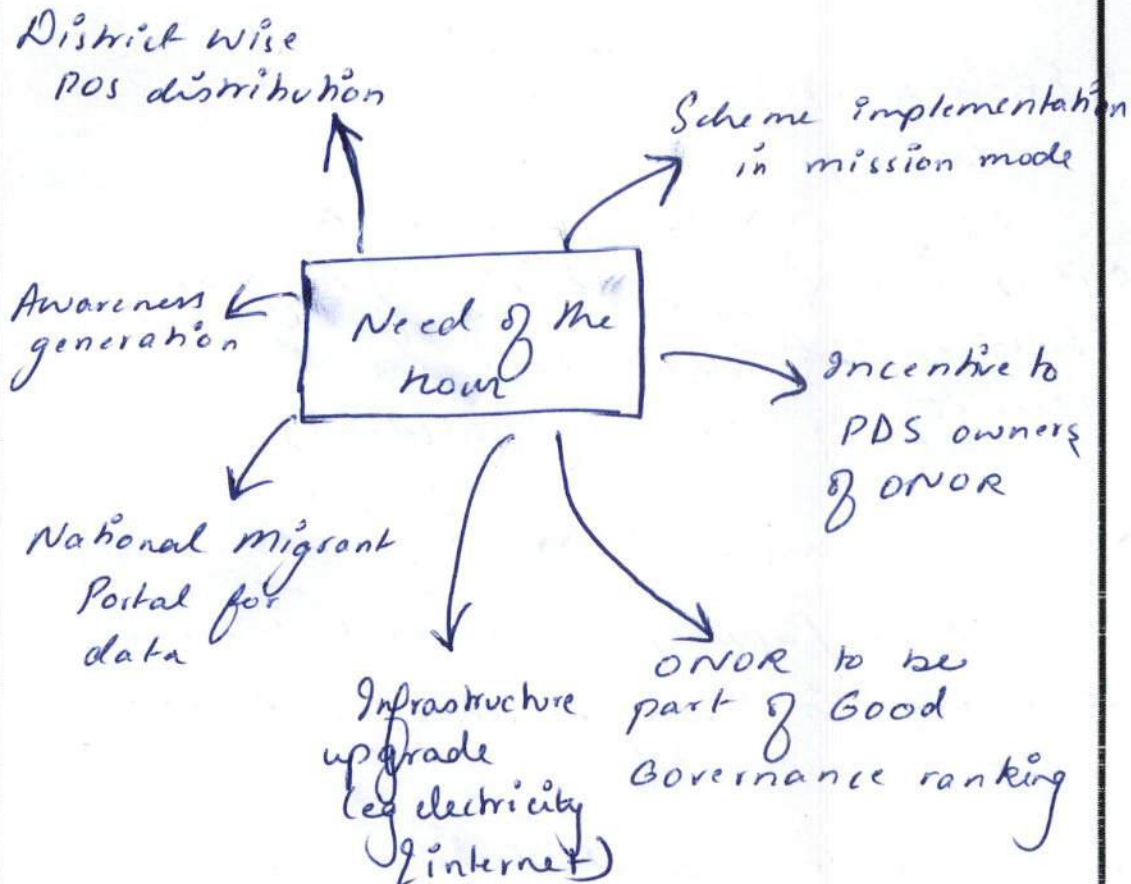 District wise
POS distribution
Scheme implementation
in mission mode
Awareness
generation
Need of the
hour
Incentive to
PDS owners
of ONOR
National Migrant
Portal for
data
Infrastructure
upgrade
(eg electricity
& internet)
ONOR to be
part of Good
Governance ranking